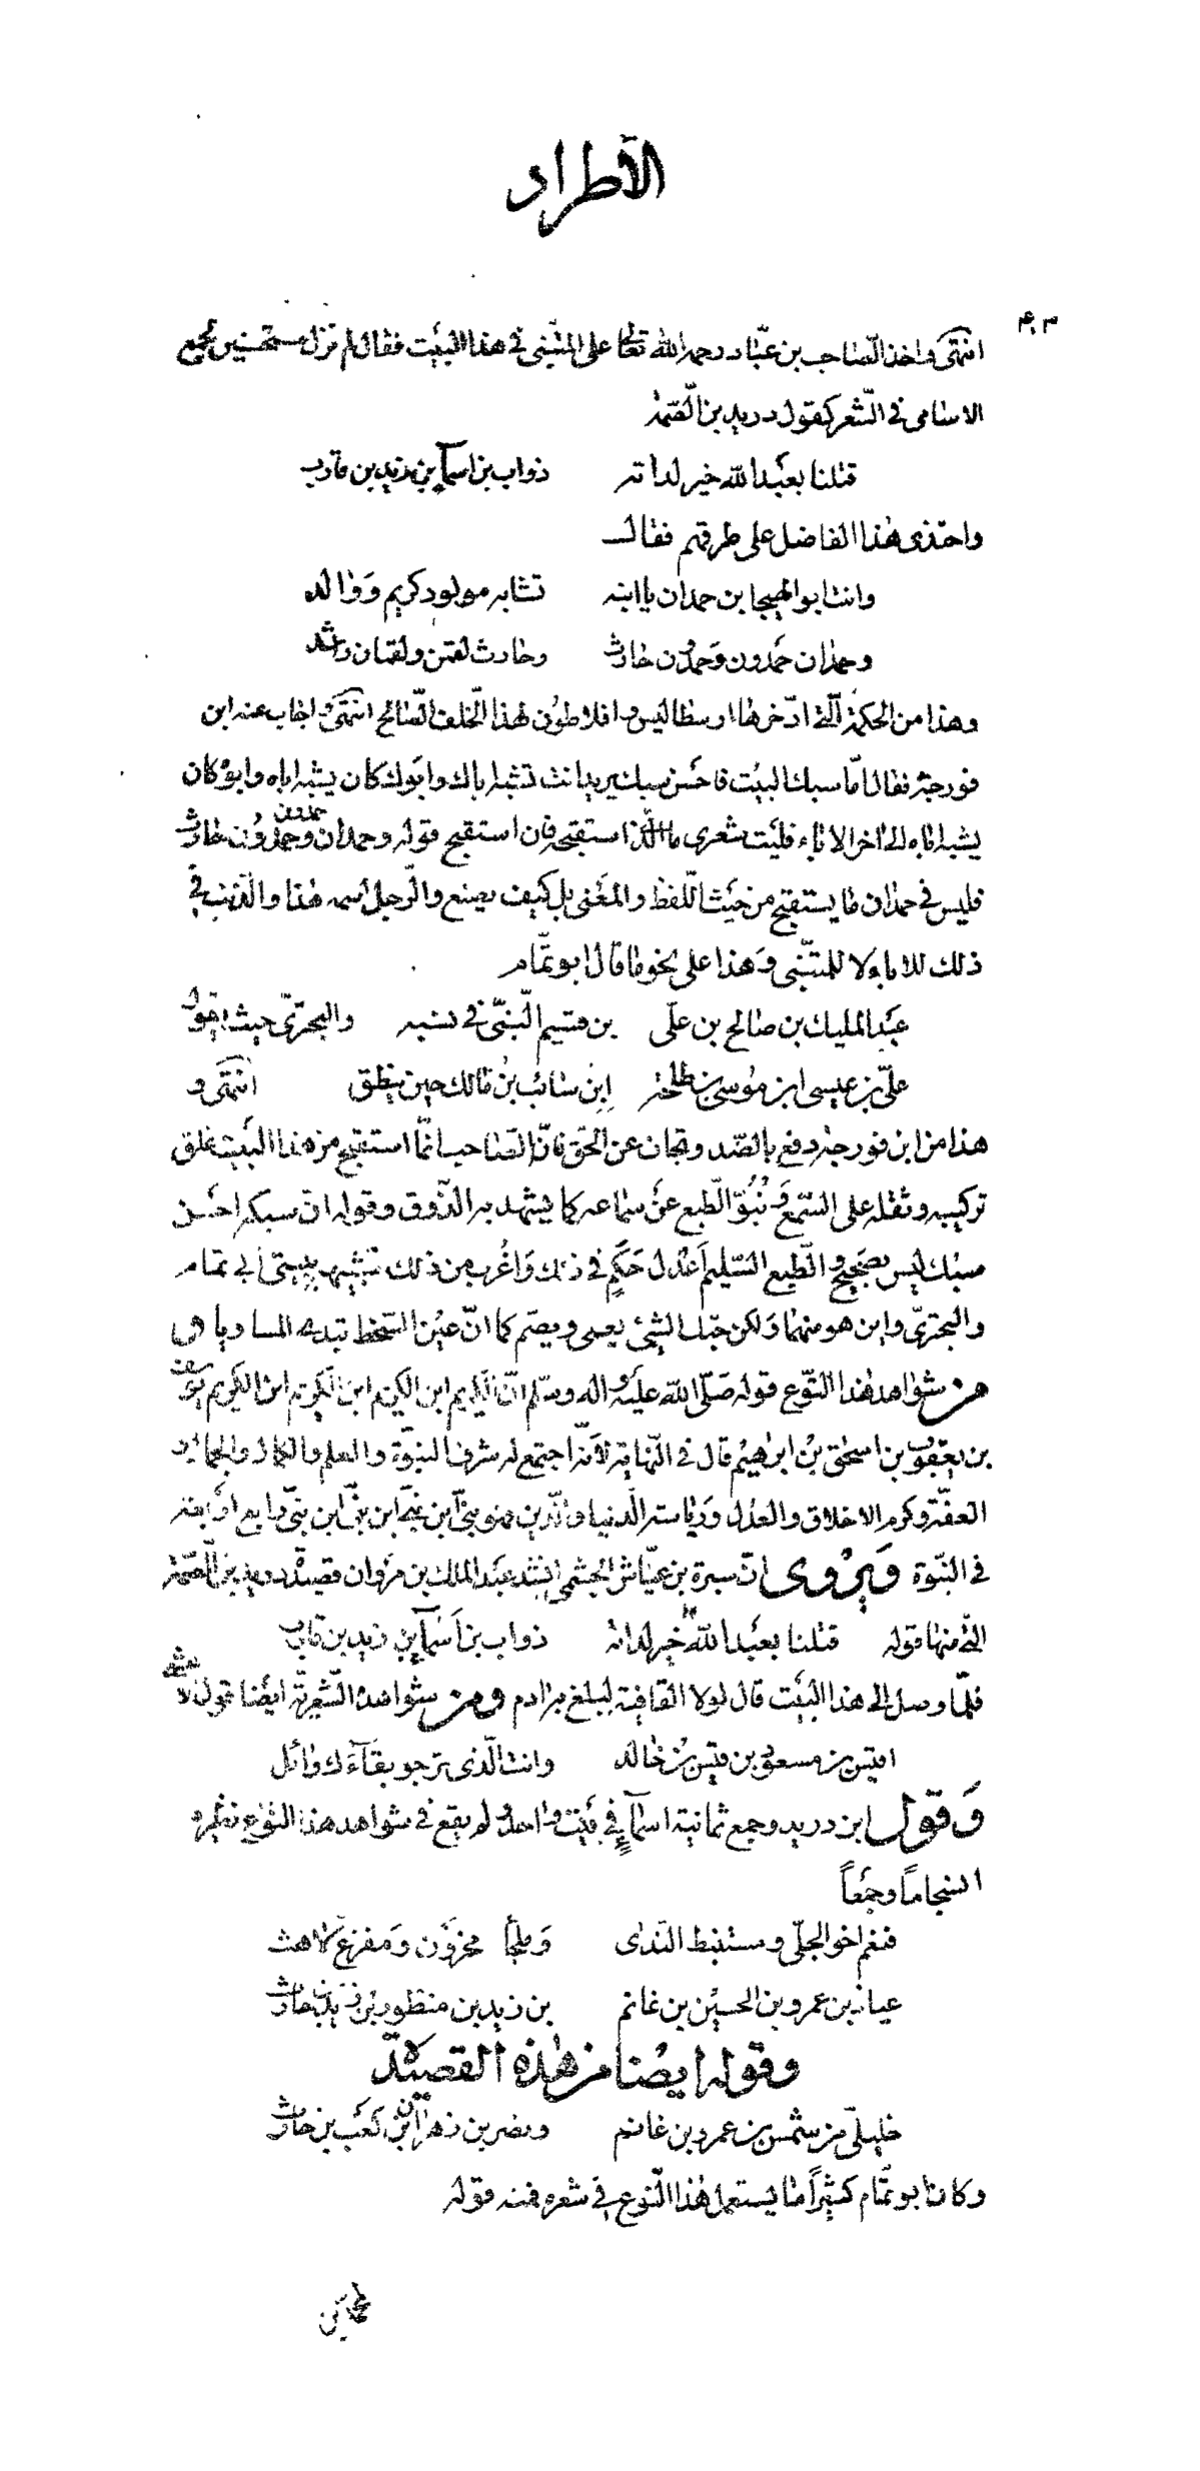 الاطراد
٤٠٣
انتهى واخذ الصاحب بن عبّاد رحمه الله تعالى على المتنبّى فى هذا البيت فقال لم نزل مستحسنين لجمع
الاسامى فى الشّعر كقول دريد بن الصّمة
قتلنا بعبد الله خير لداته ذواب بن اسمآء بن زيد بن قارب
واحتذى هذا الفاضل على طرقهم فقال
وانت ابو الهيجا بن حمدان يا ابنه تشابه مولود كريم ووالد
وحمدان حمدون وحمدون حارث وحارث لقمن ولقمان راشد
وهذا من الحكمة الّتى ادّخرها ارسطاليس وافلاطون لهذا الخلف الصّالح انتهى واجاب عنه ابن
فورجة فقال امّا سبك البيت فاحسن سبك يريد انت تشبه اباك وابوك كان يشبه اباه وابوه كان
يشبه اباه الى اخر الاباء فليت شعرى ما الّذى استقبحه فان استقبح قوله وحمدان حمدون وحمدون حارث
فليس فى حمدان ما يستقبح من حيث اللّفظ والمعنى بل كيف يصنع والرّجل اسمه هذا والذنب فى
ذلك للاباء لا للمتنبّى وهذا على نحو ما قال ابو تمّام
عبد المليك بن صالح بن علىّ بن قسيم النّبىّ فى نسبه والبحترىّ حيث يقول
علىّ بن عيسى ابن موسى بن طلحة ابن سائب بن مالك حين ينطق انتهى و
هذا من ابن فورجة دفع بالصّد وتجان عن الحق فانّ الصّاحب انّما استقبح من هذا البيت غلق
تركيبه وثقله على السّمع ونبوّ الطّبع عن سماعه كما يشهد به الذّوق وقوله انّ سبكه احسن
سبك ليس بصحيح والطّبع السّليم اعدل حكم فى ذلك واغرب من ذلك تشبيهه ببيتى ابى تمام
والبحترىّ واين هو منهما ولكن حبّك الشىء يعمى ويصم كما انّ عين السّخط تبدى المساويا و
من شواهد هذا النّوع قوله صلّى الله عليه واله وسلّم انّ الكريم ابن الكريم ابن الكريم ابن الكريم يوسف
بن يعقوب بن اسحق بن ابرهيم قال فى النّهاية لانّه اجتمع له شرف النبوّة والعلم والكمال والجمال و
العفّة وكرم الاخلاق والعدل ورياسة الدّنيا والدّين فهو نبىّ ابن نبىّ ابن نبىّ ابن نبىّ رابع اربعة
فى النّبوّة ويروى انّ سبرة بن عيّاش الجشمى انشد عبد الملك بن مروان قصيدة دريد بن الصّمة
الّتى منها قوله قتلنا بعبد الله خير لداته ذواب بن اسمآء بن زيد بن قارب
فلمّا وصل الى هذا البيت قال لولا القافية لبلغ به ادم ومن شواهده الشّعرية ايضا قول الاعشى
اقيس بن مسعود بن قيس بن خالد وانت الّذى ترجو بقآءك وائل
وقول ابن دريد وجمع ثمانية اسمآء فى بيت واحد ولم يقع فى شواهد هذا النّوع نظيره
انسجاما وجمعاً
فنعم اخو الجلّى ومستنبط النّدى وملجا محزون ومفزع لاهث
عياذ بن عمرو بن الحسين بن غانم بن زيد بن منظور بن زيد بن حارث
وقوله ايضا من هذه القصيدة
خليلىّ من شمس بن عمرو بن غانم ونصر بن زهران بن كعب بن حارث
وكان ابو تمّام كثيراً ما يستعمل هذا النّوع فى شعره فمنه قوله